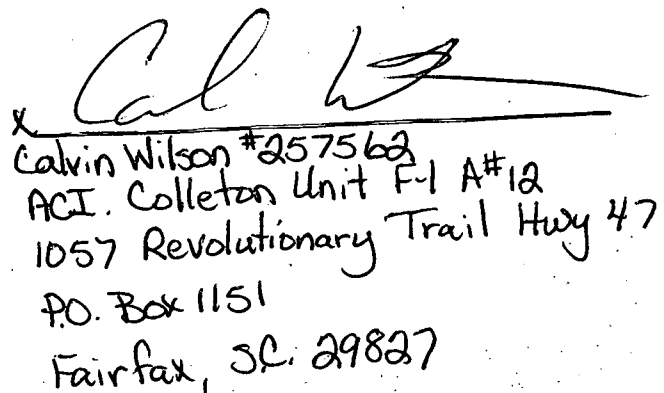 x Cal W
Calvin Wilson #257562
ACI. Colleton Unit F-1 A#12
1057 Revolutionary Trail Hwy 47
P.O. Box 1151
Fairfax, SC. 29827